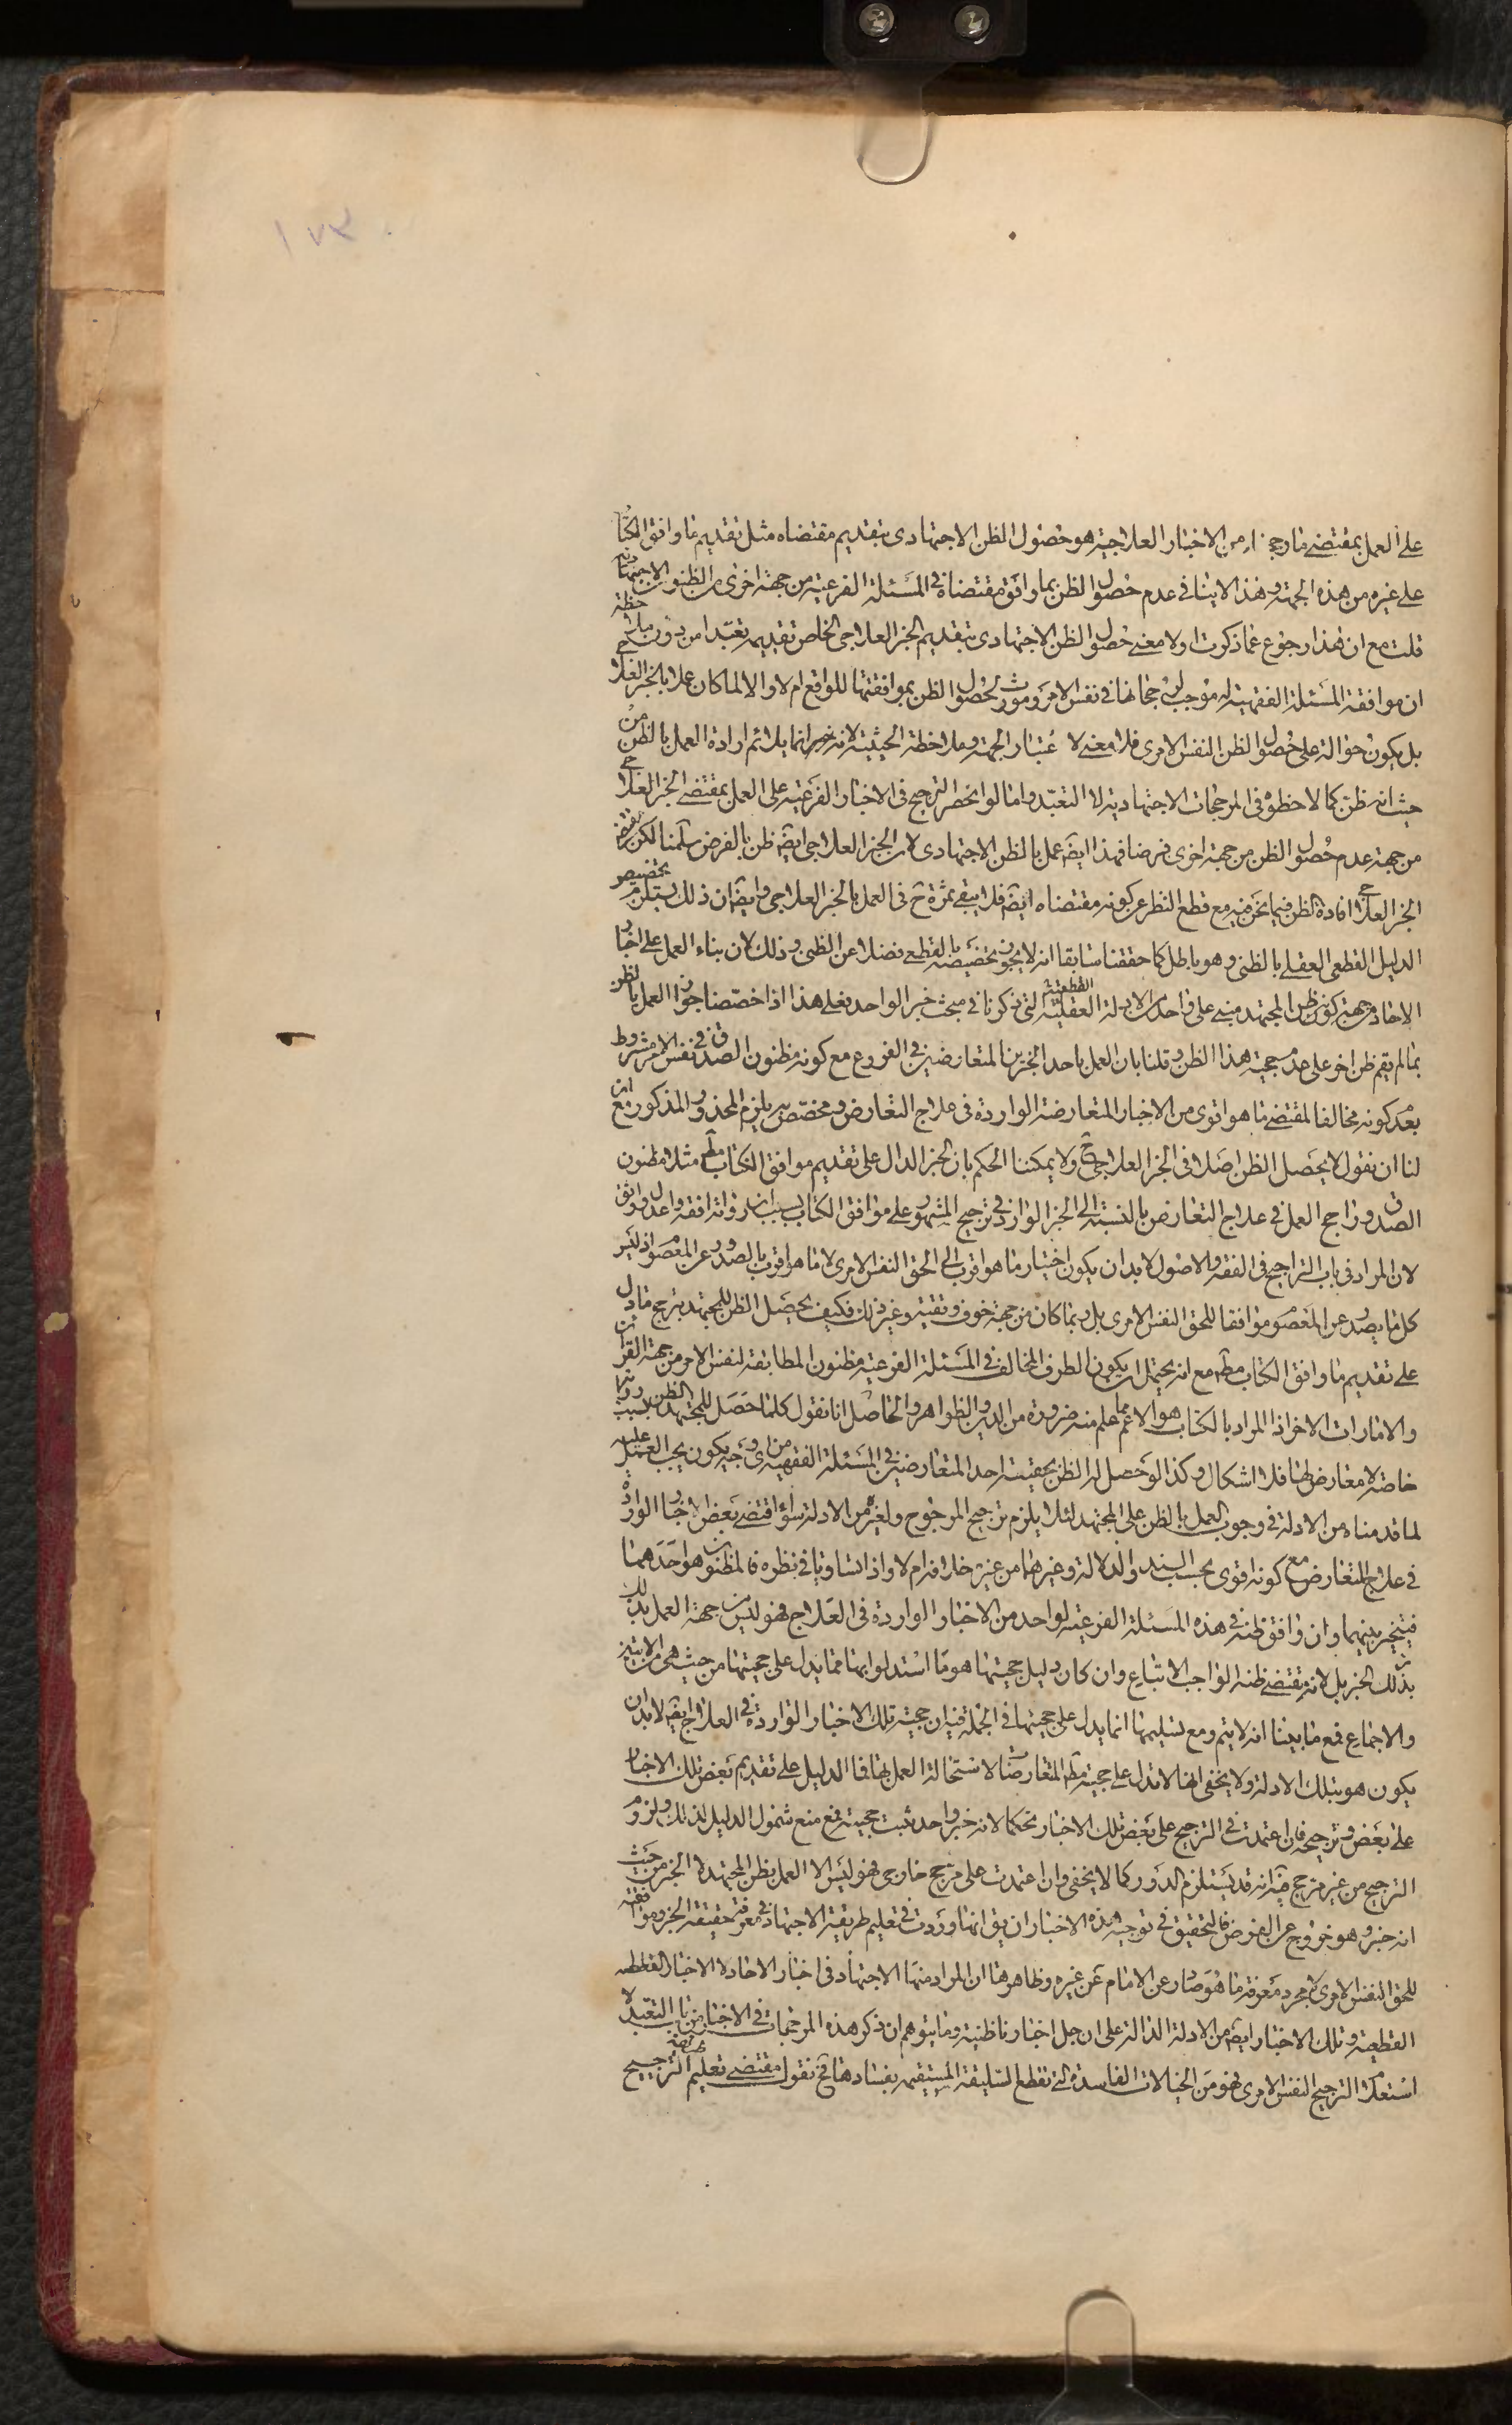 ١٧٣
على العمل بمقتضى ما رجح من الاخبار العلاجية هو حصول الظن الاجتهادى بتقديم مقتضاه مثل تقديم ما وافق الكتاب
على غيره من هذه الجهة وهذا لا ينافى عدم حصول الظن بما وافق مقتضاه فى المسئلة الفرعية من جهة اخرى من الظنون الاجتهادية
قلت مع ان هذا رجوع عما ذكرت اولا معنى لحصول الظن الاجتهادى بتقديم الخبر العلاجى الخاص تقديمه تعبّدا من دون ملاحظة
ان موافقة المسئلة الفقهية له موجب لرجحانها فى نفس الامر ومورث لحصول الظن بموافقتها للواقع ام لا والا لما كان عملا بالخبر العلاجى
بل يكون حوالة على حصول الظن النفس الامرى فلا معنى لاعتبار الجهة وملاحظة الحيثية لانه خبر انما يلائم ارادة العمل بالظن من
حيث انه ظن كما لاحظوه فى المرجحات الاجتهادية لا التعبّد واما لو انحصر الترجيح فى الاخبار الفرعية على العمل بمقتضى الخبر العلاجى
من جهة عدم حصول الظن من جهة اخرى فرضا فهذا ايضَ عمل بالظن الاجتهادى لان الخبر العلاجى ايضَ ظن بالفرض سلّمنا لكن نفرض
الخبر العلاجى افادة الظن فيما نحن فيه مع قطع النظر عن كونه مقتضاه ايضَ فلا يبقى ثمرة ح فى العمل بالخبر العلاجى وايضَ ان ذلك يستلزم تخصيص
الدليل القطعى العقلى بالظنى وهو باطل كما حققنا سابقا انه لا يجوز تخصيصه بالقطعى فضلا عن الظنى وذلك لان بناء العمل على اخبار
الاحاد من جهة كونه ظن المجتهد مبنى على واحد من الادلة العقلية القطعية التى ذكرنا فى مبحث خبر الواحد فعلى هذا اذا خصّصنا جواز العمل بالظن
بما لم يقم ظن اخر على عدم حجية هذا الظن وقلنا بان العمل باحد الخبرين المتعارضين فى الفروع مع كونه مظنون الصدق فى نفس الامر مشروط
بعدم كونه مخالفا لمقتضى ما هو اقوى من الاخبار المتعارضة الواردة فى علاج التعارض ومخصّص به يلزم المحذور المذكور مع ان
لنا ان نقول لا يحصل الظن اصلا فى الخبر العلاجى ح ولا يمكننا الحكم بان الخبر الدال على تقديم موافق الكتاب مط مثلا مظنون
الصدق وراجح العمل فى علاج التعارض بالنسبة الى الخبر الوارد فى ترجيح المشهور على موافق الكتاب بسبب ان رواته افقه واعدل واوثق
لان المراد فى باب التراجيح فى الفقه والاصول لابد ان يكون اختيار ما هو اقرب الى الحق النفس الامرى لا ما هو اقرب بالصدور عن المعصوم اذ ليس
كل ما يصدر عن المعصوم موافقا للحق النفس الامرى بل ربما كان من جهة خوف وتقية وغير ذلك فكيف يحصل الظن للمجتهد بترجيح ما دل
على تقديم ما وافق الكتاب مط مع انه يحتمل ان يكون الطرف المخالف فى المسئلة الفرعية مظنون المطابقة لنفس الامر من جهة القرائن
والامارات الاخر اذ المراد بالكتاب هو الاعم مما علم منه ضرورة من الدين والظواهر والحاصل انا نقول كلما حصل للمجتهد الظن بسبب رواية
خاصة لا معارض لها فلا اشكال وكذا لو حصل له الظن بحقيّة احد المتعارضين فى المسئلة الفقهية من اى وجه يكون يجب العمل عليه
لما قدمناه من الادلة فى وجوب العمل بالظن على المجتهد لئلا يلزم ترجيح المرجوح ولغيره من الادلة سواء اقتضى بعض الاخبار الواردة
فى علاج التعارض مع كونه اقوى بحسب السند والدلالة وغيرهما من غير خلافه ام لا واذا تساويا فى نظره فالمظنون هو احدهما
فيتخير بينهما وان وافق ظنه فى هذه المسئلة الفرعية لواحد من الاخبار الواردة فى العلاج فهو ليس من جهة العمل بذلك
بذلك الخبر بل لانه مقتضى ظنه الواجب الاتباع وان كان دليل حجيتها هو ما استدلوا بها مما يدل على حجيتها من حيث هى من الايتين
والاجماع فمع ما بينا انه لا يتم ومع تسليمها انما يدل على حجيتها فى الجملة فيه ان حجية تلك الاخبار الواردة فى العلاج ايضَ لابد ان
يكون هو بتلك الادلة ولا يخفى انها لا تدل على حجية مط المتعارضات لاستحالة العمل بها فما الدليل على تقديم بعض تلك الاخبار
على بعض وترجيحه فان اعتمدت فى الترجيح على بعض تلك الاخبار تحكما لانه خبر واحد ثبت حجيته فمع منع شمول الدليل لذلك ولزوم
الترجيح من غير مرجح فيه انه قد يستلزم الدور كما لا يخفى وان اعتمدت على مرجح خارجى فهو ليس الا العمل بظن المجتهد لا الخبر من حيث
انه خبر وهو خروج عن الفرض فالتحقيق فى توجيه هذه الاخبار ان يق انها وردت فى تعليم طريقة الاجتهاد فى معرفة حقيقة الخبر وموافقته
للحق النفس الامرى لا مجرد معرفة ما هو صادر عن الامام عن غيره وظاهرها ان المراد منها الاجتهاد فى اخبار الاحاد لا الاخبار
القطعية وتلك الاخبار ايضَ من الادلة الدالة على ان جل اخبارنا ظنية وما يتوهم ان ذكر هذه المرجحات فى الاخبار من باب التعبّد لا
استعلام الترجيح النفس الامرى فهو من الخيالات الفاسدة التى تقطع السليقة المستقيمة بفسادها فح نقول مقتضى تعليم طريقة الترجيح